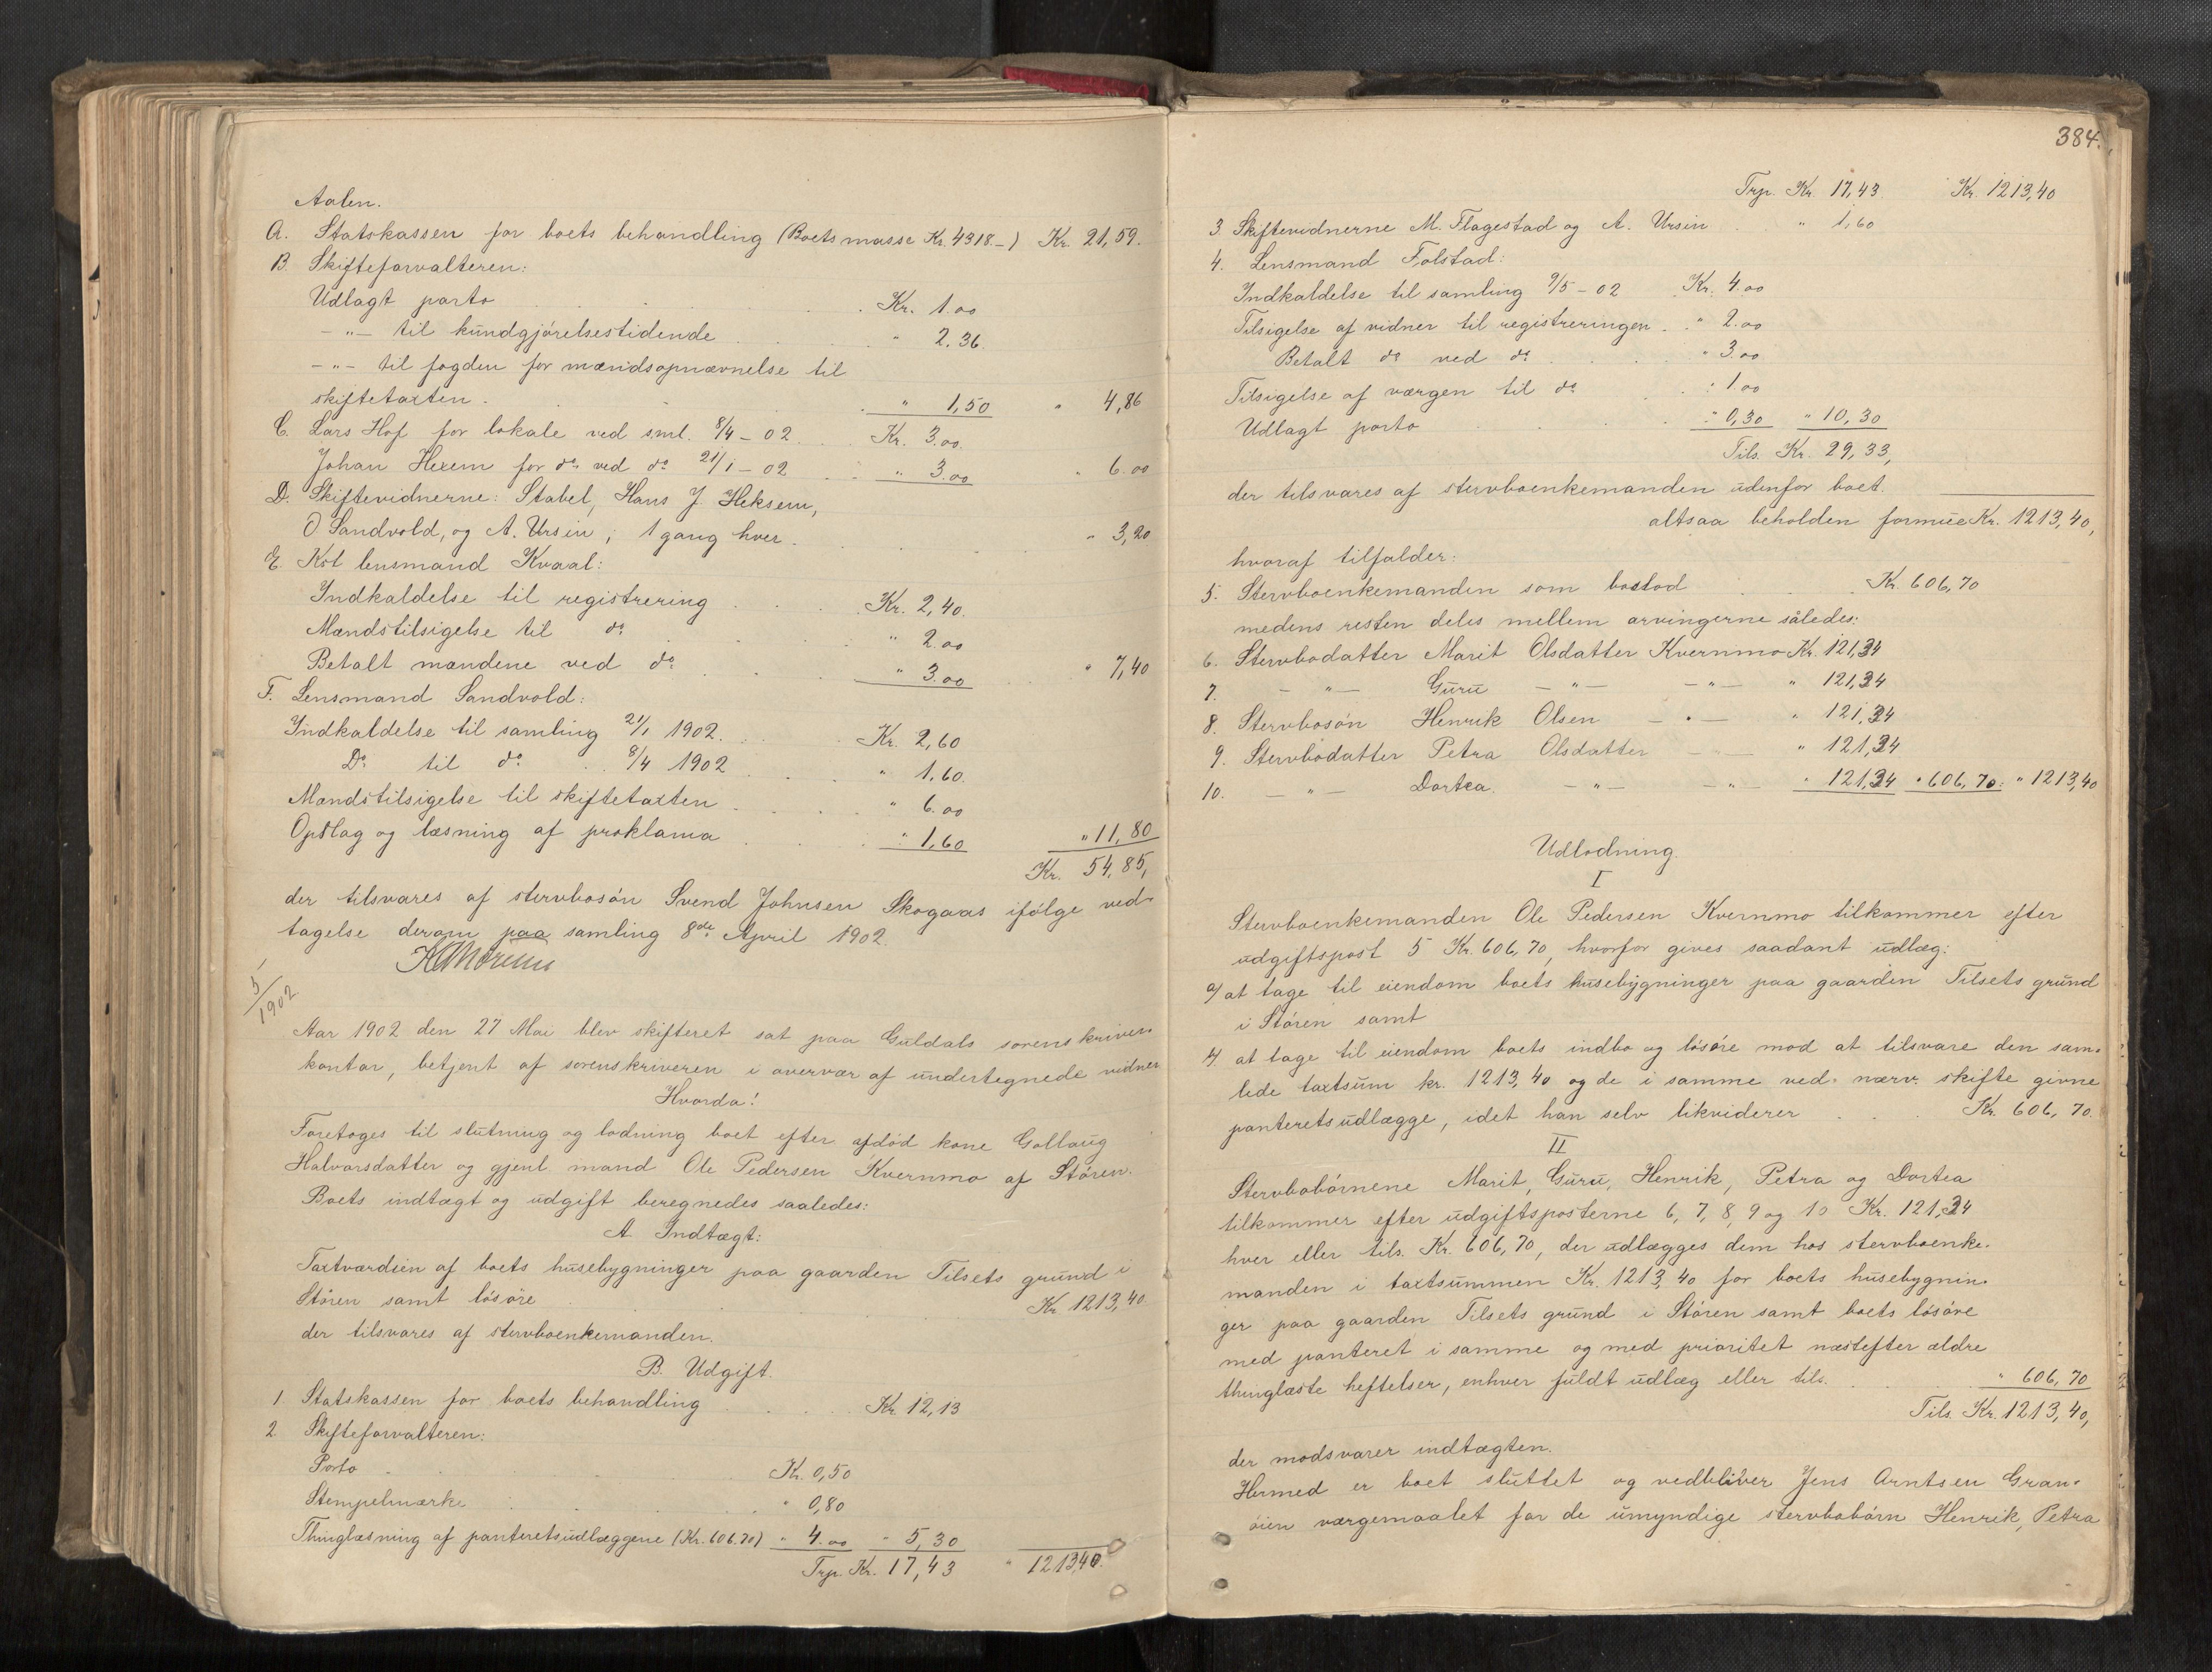 Aalen.
A. Statskassen for boets behandling (Boets masse Kr. 4318-) Kr. 21,59.
B. Skifteforvalteren:
Udlagt porto . . . Kr. 1.00
-"- til kundgjørelsestidende . . . " 2.36.
-"- til fogden for mændsopnævnelse til
skiftetaxten . . . " 1,50 " 4,86
C. Lars Hof for lokale ved sml. 8/4-02 . . Kr. 3.00.
Johan Hexem for do ved do 21/1-02 . . " 3.00 " 6.00
D. Skiftevidnerne: Stabel, Hans J. Heksem,
O Sandvold, og A. Ursin; 1 gang hver . . . " 3,20
E. Kst lensmand Kvaal:
Indkaldelse til registrering . . . Kr. 2,40.
Mændstilsigelse til do . . . " 2.00
Betalt mændene ved do . . . " 3.00 . . " 7,40
F. Lensmand Sandvold:
Indkaldelse til samling 21/1 1902. . . Kr. 2,60
Do til do . . 8/4 1902 . . " 1.60.
Mændstilsigelse til skiftetaxten . . . " 6.00
Opslag og læsning af proklama . . . " 1,60 " 11,80
Kr. 54,85,
der tilsvares af stervbosøn Svend Johnsen Skogaas ifølge ved-
tagelse derom paa samling 8de April 1902.
5/1902
Aar 1902 den 27 Mai blev skifteret sat paa Guldals sorenskriver-
kontor, betjent af sorenskriveren i overvær af undertegnede vidner
Hvorda!
Foretoges til slutning og lodning boet efter afdød kone Gollaug
Halvorsdatter og gjenl. mand Ole Pedersen Kvernmo af Støren.
Boets indtægt og udgift beregnedes saaledes:
A. Indtægt:
Taxtværdien af boets husebygninger paa gaarden Tilsets grund i
Støren samt løsøre . . . Kr. 1213,40
der tilsvares af stervboenkemanden.
B. Udgift.
1 Statskassen for boets behandling . . . Kr. 12,13
2 Skifteforvalteren:
Porto . . . Kr. 0,50
Stempelmærke . . . " 0,80
Thinglæsning af panteretsudlæggene (Kr. 606.70) " 4.00 " 5,30
Trp. Kr. 17,43 " 1213,40.
384.
Trp. Kr. 17,43. Kr. 1213,40
3. Skiftevidnerne M. Flagestad og A. Ursin . " 1,60
4. Lensmand Folstad:
Indkaldelse til samling 9/5-02 . Kr. 4.00
Tilsigelse af vidner til registreringen . " 2.00
Betalt do ved do . . . " 3.00
Tilsigelse af værgen til do . . " 1.00
Udlagt porto . . . " 0,30 " 10,30
Tils. Kr. 29,33,
der tilsvares af stervboenkemanden udenfor boet.
altsaa beholden formue Kr. 1213,40,
hvoraf tilfalder:
5. Stervboenkemanden som boslod . . . Kr. 606,70
medens resten deles mellem arvingerne således:
6. Stervbodatter Marit Olsdatter Kvernmo Kr. 121,34
7. -"- Guru -"- -"- " 121,34
8. Stervbosøn Henrik Olsen -"- " 121,34
9. Stervbodatter Petra Olsdatter -"- " 121,34
10. -"- Dortea. -"- -"- " 121,34 " 606,70. " 1213,40
Udlodning.
I
Stervboenkemanden Ole Pedersen Kvernmo tilkommer efter
udgiftspost 5 Kr. 606,70, hvorfor gives saadant udlæg:
a/ at tage til eiendom boets husebygninger paa gaarden Tilsets grund
i Støren samt
b/ at tage til eiendom boets indbo og løsøre mod at tilsvare den sam-
lede taxtsum kr. 1213,40 og de i samme ved nærv. skifte givne
panteretsudlægge, idet han selv likviderer . . Kr. 606,70.
II
Stervbobørnene Marit, Guru, Henrik, Petra og Dortea
tilkommer efter udgiftsposterne 6, 7, 8, 9 og 10 Kr. 121,34
hver eller tils. Kr. 606,70, der udlægges dem hos stervboenke-
manden i taxtsummen Kr. 1213,40 for boets husebygnin-
ger paa gaarden Tilsets grund i Støren samt boets løsøre
med panteret i samme og med prioritet næstefter ældre
thinglæste heftelser, enhver fuldt udlæg eller tils. . . " 606,70
Tils. Kr. 1213,40,
der modsvarer indtægten.
Hermed er boet sluttet og vedbliver Jens Arntsen Gran-
øien værgemaalet for de umyndige stervbobørn Henrik, Petra